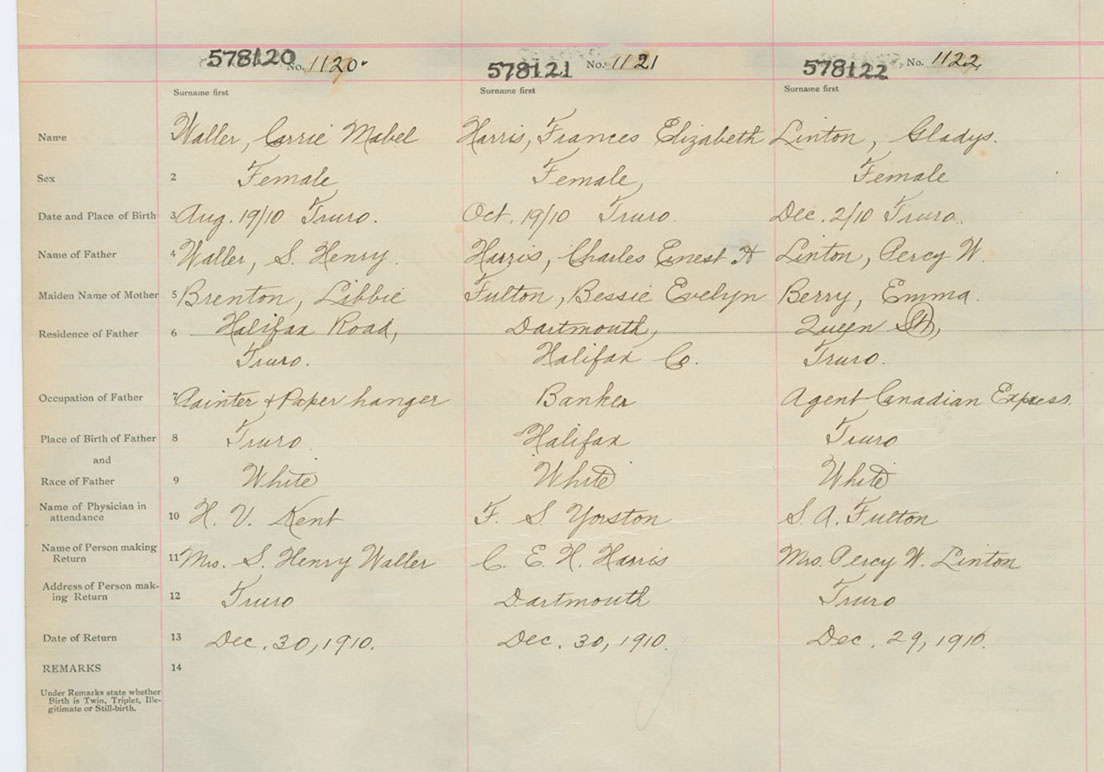 578120 No. 1120. 578121 No. 1121 578122 No. 1122
Surname first Surname first Surname first
Name Waller, Carrie Mabel Harris, Frances Elizabeth Linton, Gladys.
Sex 2 Female Female, Female
Date and Place of Birth 3 Aug. 19/10 Truro. Oct. 19/10 Truro. Dec. 2/10 Truro.
Name of Father 4 Waller, S. Henry. Harris, Charles Ernest H Linton, Percy W.
Maiden Name of Mother 5 Brenton, Libbie Fulton, Bessie Evelyn Berry, Emma.
Residence of Father 6 Halifax Road, Dartmouth, Queen St,
Truro. Halifax Co. Truro.
Occupation of Father 7 Painter & Paper hanger Banker Agent Canadian Express.
Place of Birth of Father 8 Truro. Halifax Truro
and
Race of Father 9 White White White
Name of Physician in
attendance 10 H. V. Kent F. S. Yorston S. A. Fulton
Name of Person making
Return 11 Mrs. S. Henry Waller C. E. H. Harris Mrs. Percy W. Linton
Address of Person mak-
ing Return 12 Truro Dartmouth Truro
Date of Return 13 Dec. 30, 1910. Dec. 30, 1910. Dec. 29, 1910.
REMARKS 14
Under Remarks state whether
Birth is Twin, Triplet, Ille-
gitimate or Still-birth.